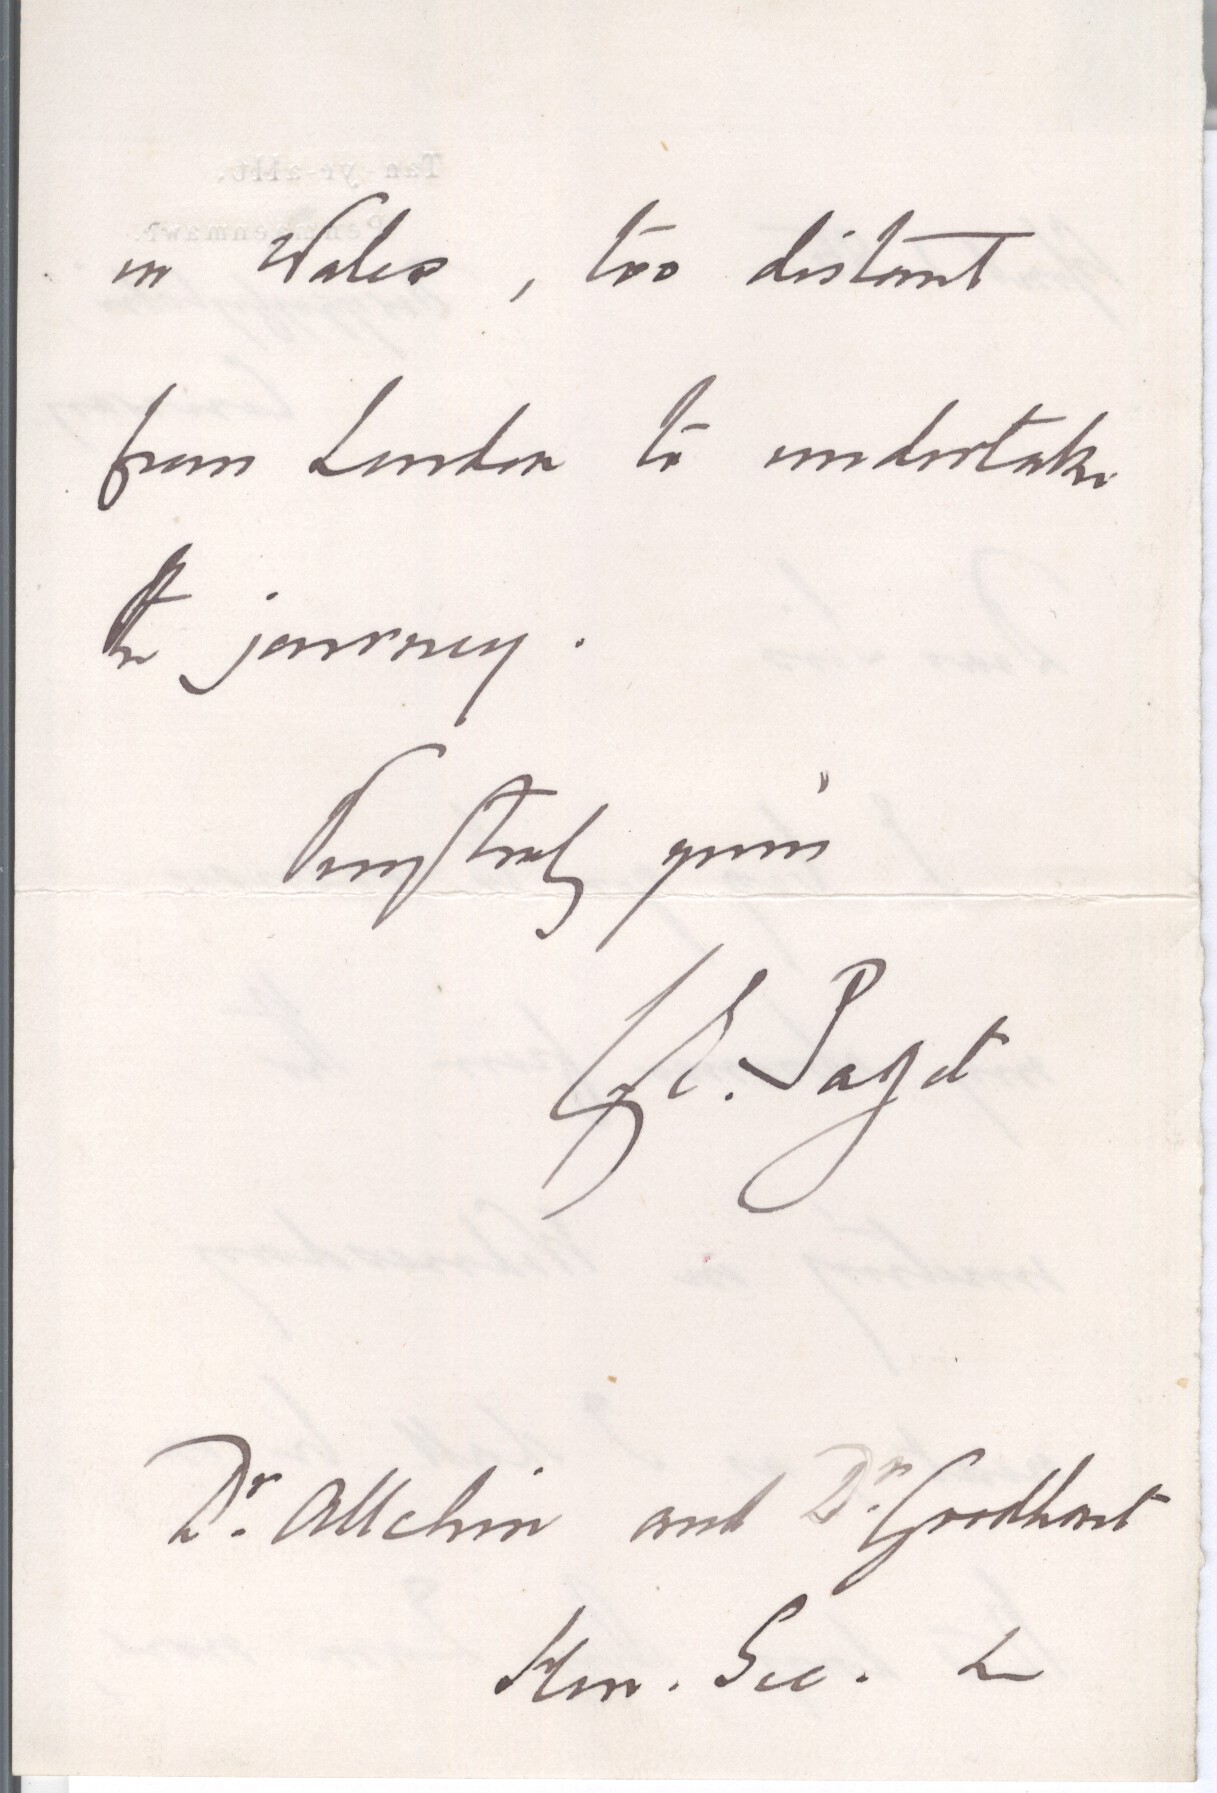 in Wales, too distant
from London to undertake
the journey.
Very truly yours
G. E. Paget
Dr. Allchin and Dr. Goodhart
Hon. Sec.